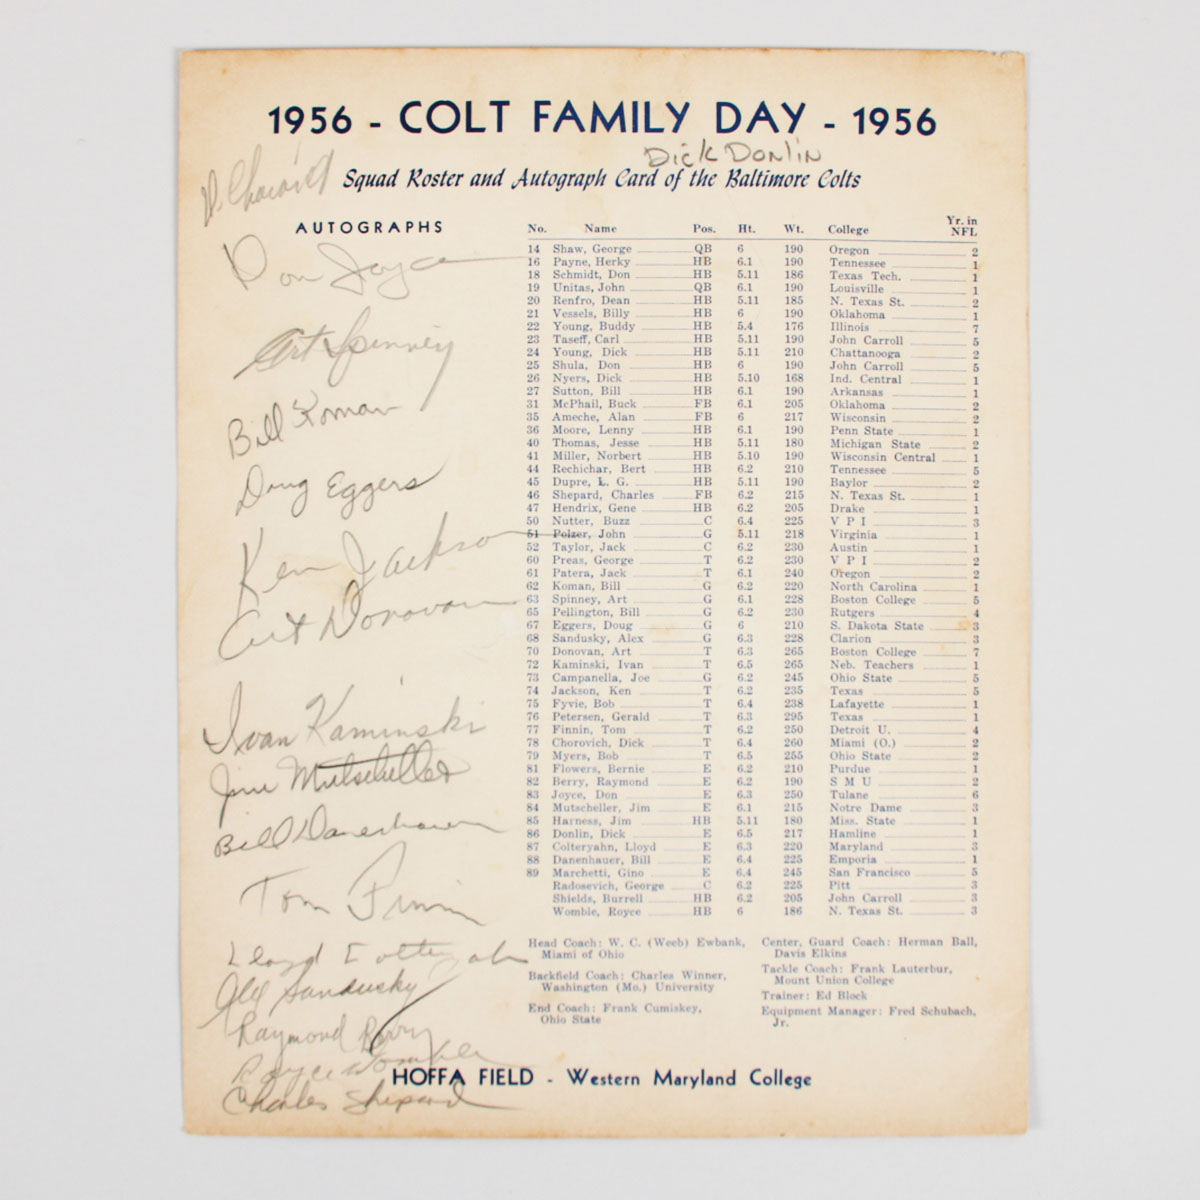 1956 - COLT FAMILY DAY - 1956
Dick Donlin
Squad Roster and Autograph Card of the Baltimore Colts
D. Chorovich
AUTOGRAPHS
Don Joyce
Art Spinney
Bill Koman
Doug Eggers
Ken Jackson
Art Donovan
Ivan Kaminski
Jim Mutscheller
Bill Danenhauer
Tom Finnin
Lloyd Colteryahn
Alex Sandusky
Raymond Berry
Royce Womble
Charles Shepard
No. Name Pos. Ht. Wt. College Yr. in NFL
14 Shaw, George QB 6 190 Oregon 2
16 Payne, Herky HB 6.1 190 Tennessee 1
18 Schmidt, Don HB 5.11 186 Texas Tech. 1
19 Unitas, John QB 6.1 190 Louisville 1
20 Renfro, Dean HB 5.11 185 N. Texas St. 2
21 Vessels, Billy HB 6 190 Oklahoma 1
22 Young, Buddy HB 5.4 176 Illinois 7
23 Taseff, Carl HB 5.11 190 John Carroll 5
24 Young, Dick HB 5.11 210 Chattanooga 2
25 Shula, Don HB 6 190 John Carroll 5
26 Nyers, Dick HB 5.10 168 Ind. Central 1
27 Sutton, Bill HB 6.1 190 Arkansas 1
31 McPhail, Buck FB 6.1 205 Oklahoma 2
35 Ameche, Alan FB 6 217 Wisconsin 2
36 Moore, Lenny HB 6.1 190 Penn State 1
40 Thomas, Jesse HB 5.11 180 Michigan State 2
41 Miller, Norbert HB 5.10 190 Wisconsin Central 1
44 Rechichar, Bert HB 6.2 210 Tennessee 5
45 Dupre, L. G. HB 5.11 190 Baylor 2
46 Shepard, Charles FB 6.2 215 N. Texas St. 1
47 Hendrix, Gene HB 6.2 205 Drake 1
50 Nutter, Buzz C 6.4 225 V P I 3
51 Polzer, John G 5.11 218 Virginia 1
52 Taylor, Jack C 6.2 230 Austin 1
60 Preas, George T 6.2 230 V P I 2
61 Patera, Jack T 6.1 240 Oregon 2
62 Koman, Bill G 6.2 220 North Carolina 1
63 Spinney, Art G 6.1 228 Boston College 5
65 Pellington, Bill G 6.2 230 Rutgers 4
67 Eggers, Doug G 6 210 S. Dakota State 3
68 Sandusky, Alex G 6.3 228 Clarion 3
70 Donovan, Art T 6.3 265 Boston College 7
72 Kaminski, Ivan T 6.5 265 Neb. Teachers 1
73 Campanella, Joe G 6.2 245 Ohio State 5
74 Jackson, Ken T 6.2 235 Texas 5
75 Fyvie, Bob T 6.4 238 Lafayette 1
76 Petersen, Gerald T 6.3 295 Texas 1
77 Finnin, Tom T 6.2 250 Detroit U. 4
78 Chorovich, Dick T 6.4 260 Miami (O.) 2
79 Myers, Bob T 6.5 255 Ohio State 2
81 Flowers, Bernie E 6.2 210 Purdue 1
82 Berry, Raymond E 6.2 190 S M U 2
83 Joyce, Don E 6.3 250 Tulane 6
84 Mutscheller, Jim E 6.1 215 Notre Dame 3
85 Harness, Jim HB 5.11 180 Miss. State 1
86 Donlin, Dick E 6.5 217 Hamline 1
87 Colteryahn, Lloyd E 6.3 220 Maryland 3
88 Danenhauer, Bill E 6.4 225 Emporia 1
89 Marchetti, Gino E 6.4 245 San Francisco 5
Radosevich, George C 6.2 225 Pitt 3
Shields, Burrell HB 6.2 205 John Carroll 3
Womble, Royce HB 6 186 N. Texas St. 3
Head Coach: W. C. (Weeb) Ewbank,
Miami of Ohio
Backfield Coach: Charles Winner,
Washington (Mo.) University
End Coach: Frank Cumiskey,
Ohio State
Center, Guard Coach: Herman Ball,
Davis Elkins
Tackle Coach: Frank Lauterbur,
Mount Union College
Trainer: Ed Block
Equipment Manager: Fred Schubach,
Jr.
HOFFA FIELD - Western Maryland College